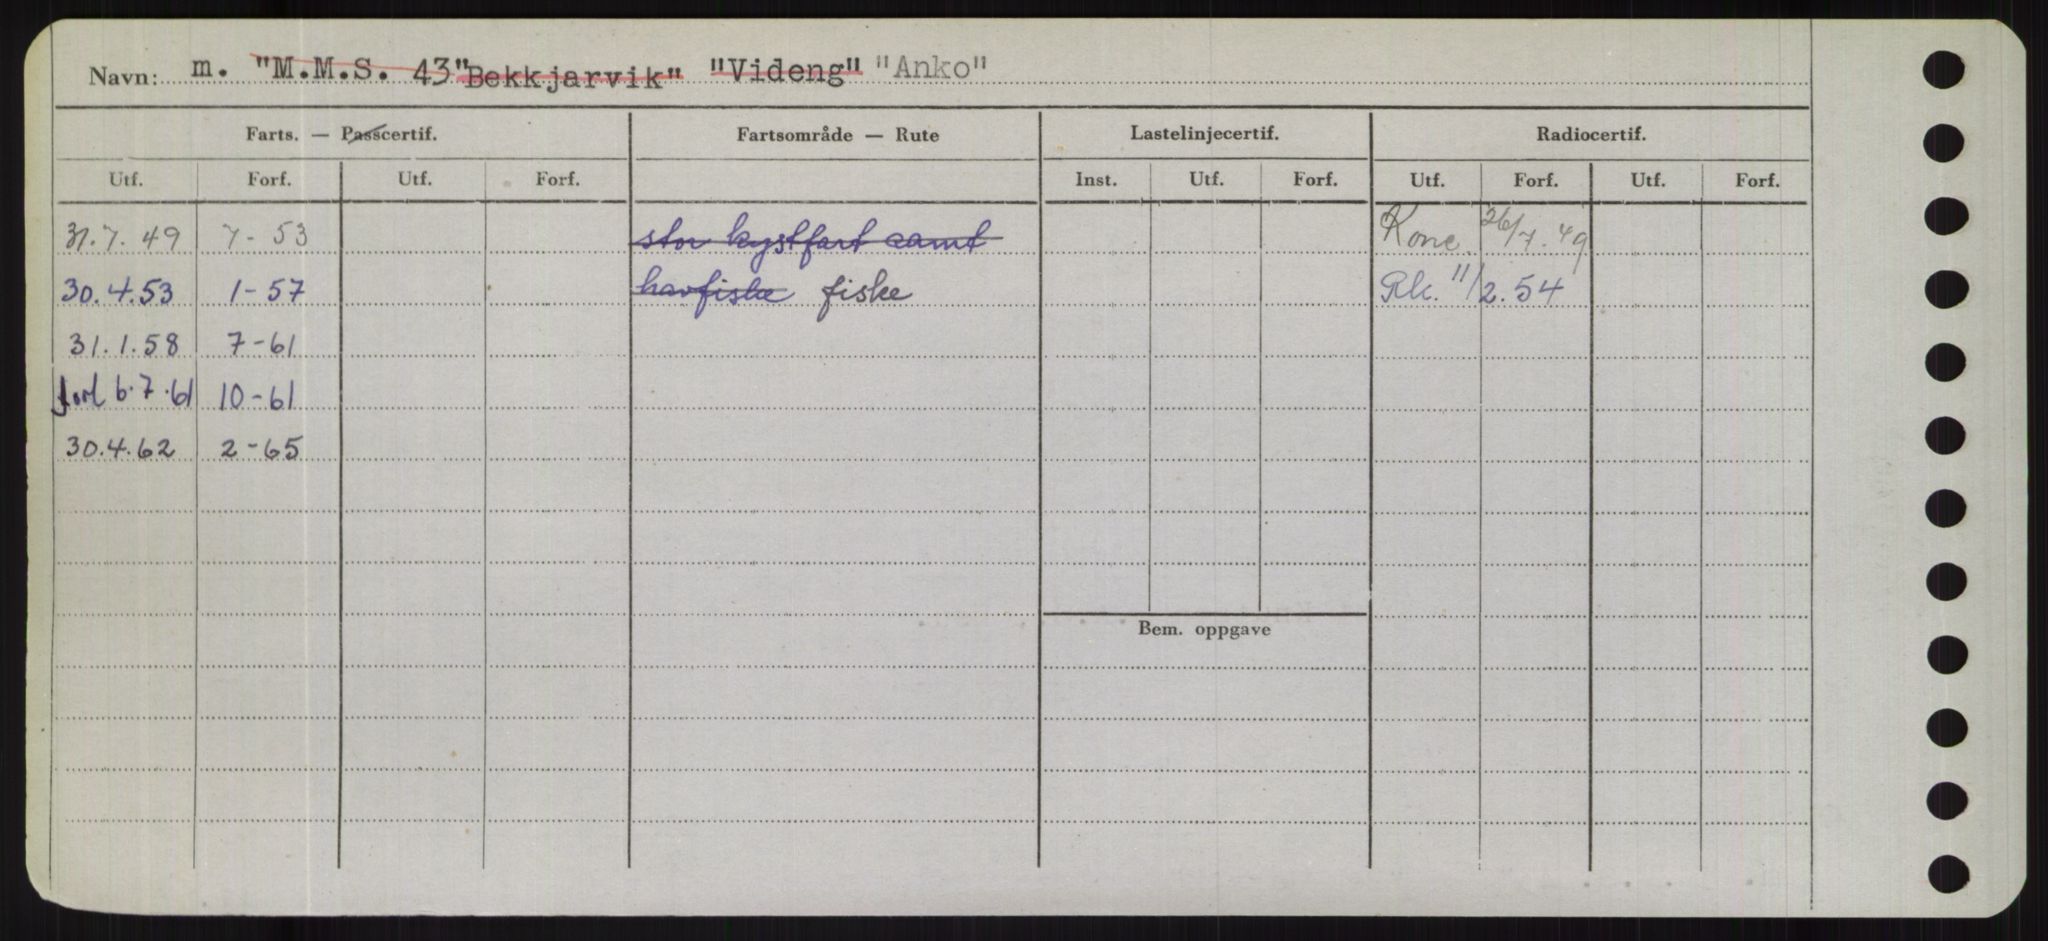 Navn: m. "M.M.S. 43" "Bekkjarvik" "Videng" "Anko"
Farts. — Passcertif. Fartsområde — Rute Lastelinjecertif. Radiocertif.
Utf. Forf. Utf. Forf. Inst. Utf. Forf. Utf. Forf. Utf. Forf.
31.7.49 7-53 stor kystfart samt Konc. 26/7.49
30.4.53 1-57 havfiske fiske Rk. 11/2.54
31.1.58 7-61
forl 6.7.61 10-61
30.4.62 2-65
Bem. oppgave